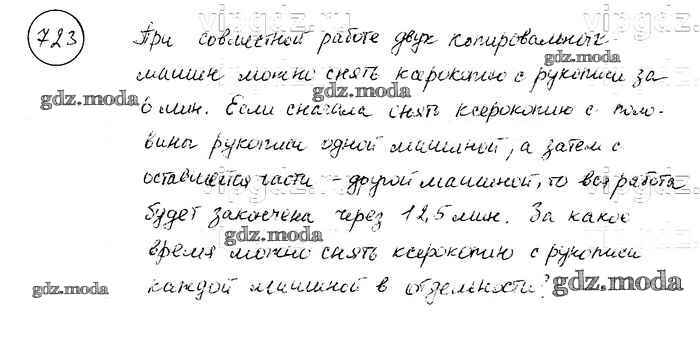 723 При совместной работе двух копировальных
машин можно снять ксерокопию с рукописи за
6 мин. Если сначала снять ксерокопию с поло-
вины рукописи одной машиной, а затем с
оставшейся части - другой машиной, то вся работа
будет закончена через 12,5 мин. За какое
время можно снять ксерокопию с рукописи
каждой машиной в отдельности?
vipgdz.ru
gdz.moda
gdz.moda
gdz.moda
gdz.moda
gdz.moda
gdz.moda